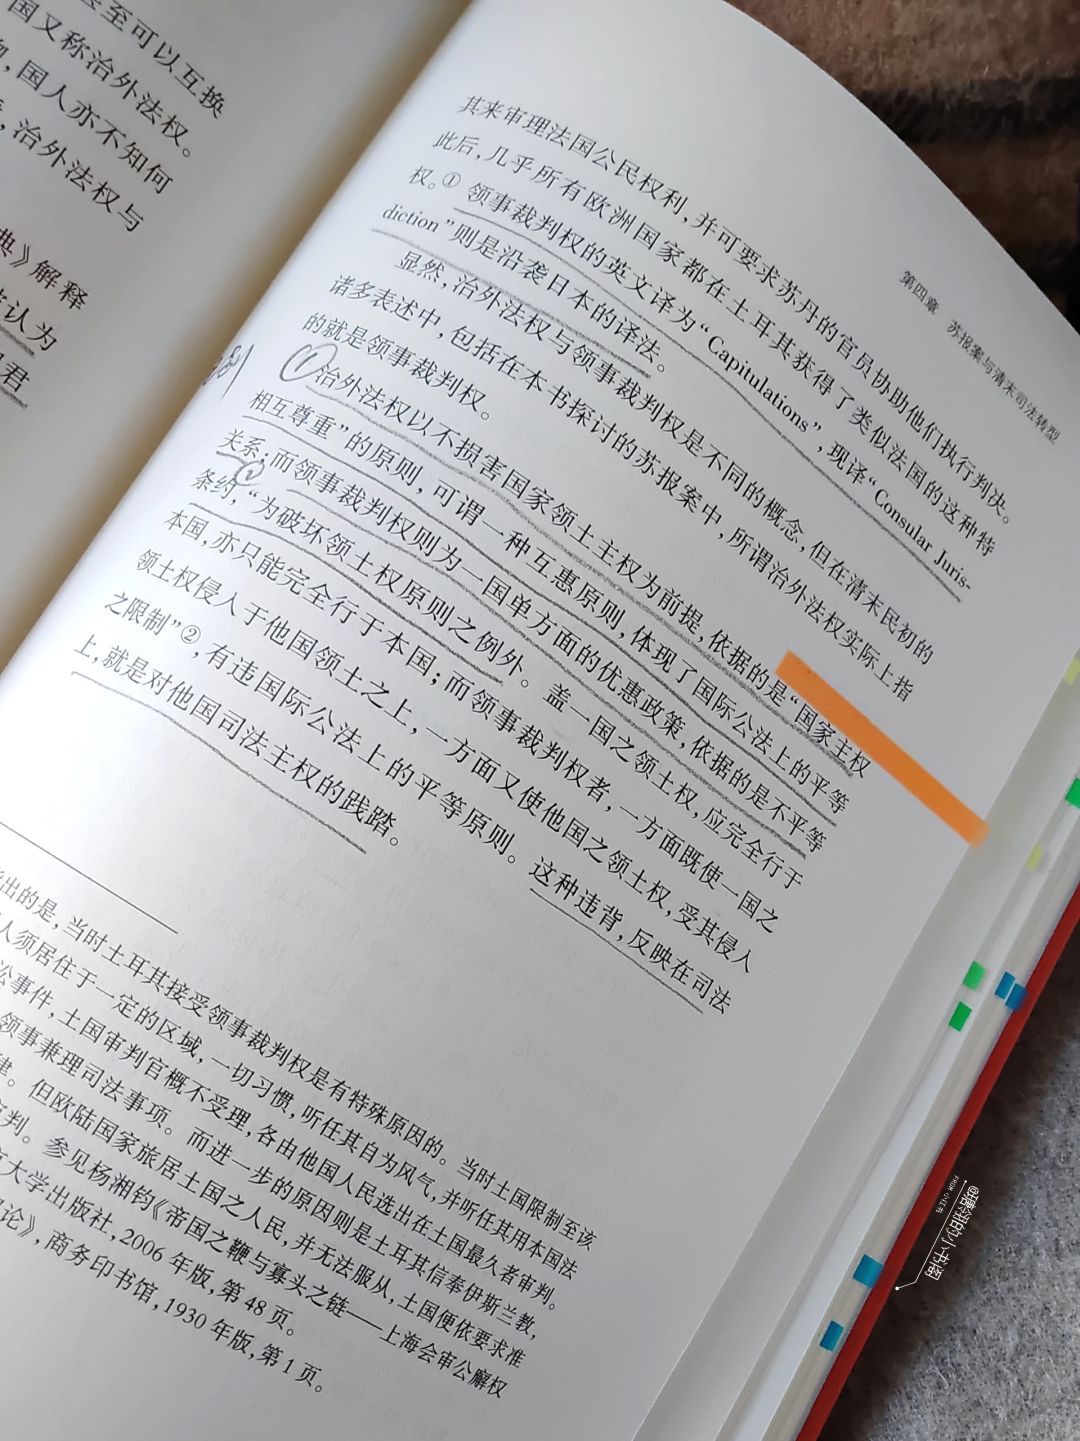 至可以互换
国又称治外法权。
，国人亦不知何
，治外法权与
典》解释
认为
君
第四章 苏报案与清末司法转型
其来审理法国公民权利，并可要求苏丹的官员协助他们执行判决。
此后，几乎所有欧洲国家都在土耳其获得了类似法国的这种特
权。① 领事裁判权的英文译为“Capitulations”，现译“Consular Juris-
diction”则是沿袭日本的译法。
显然，治外法权与领事裁判权是不同的概念，但在清末民初的
诸多表述中，包括在本书探讨的苏报案中，所谓治外法权实际上指
的就是领事裁判权。
① 治外法权以不损害国家领土主权为前提，依据的是“国家主权
相互尊重”的原则，可谓一种互惠原则，体现了国际公法上的平等
关系；② 而领事裁判权则为一国单方面的优惠政策，依据的是不平等
条约，“为破坏领土权原则之例外。盖一国之领土权，应完全行于
本国，亦只能完全行于本国；而领事裁判权者，一方面既使一国之
领土权侵入于他国领土之上，一方面又使他国之领土权，受其侵入
之限制”②，有违国际公法上的平等原则。这种违背，反映在司法
上，就是对他国司法主权的践踏。
出的是，当时土耳其接受领事裁判权是有特殊原因的。当时土国限制至该
人须居住于一定的区域，一切习惯，听任其自为风气，并听任其用本国法
讼事件，土国审判官概不受理，各由他国人民选出在土国最久者审判。
领事兼理司法事项。而进一步的原因则是土耳其信奉伊斯兰教，
律。但欧陆国家旅居土国之人民，并无法服从，土国便依要求准
审判。参见杨湘钧《帝国之鞭与寡头之链——上海会审公廨权
大学出版社，2006年版，第48页。
论》，商务印书馆，1930年版，第1页。
FROM 小红书